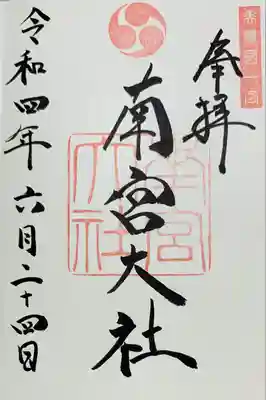 奉拝
南宮大社
令和四年六月二十四日
南宮大社